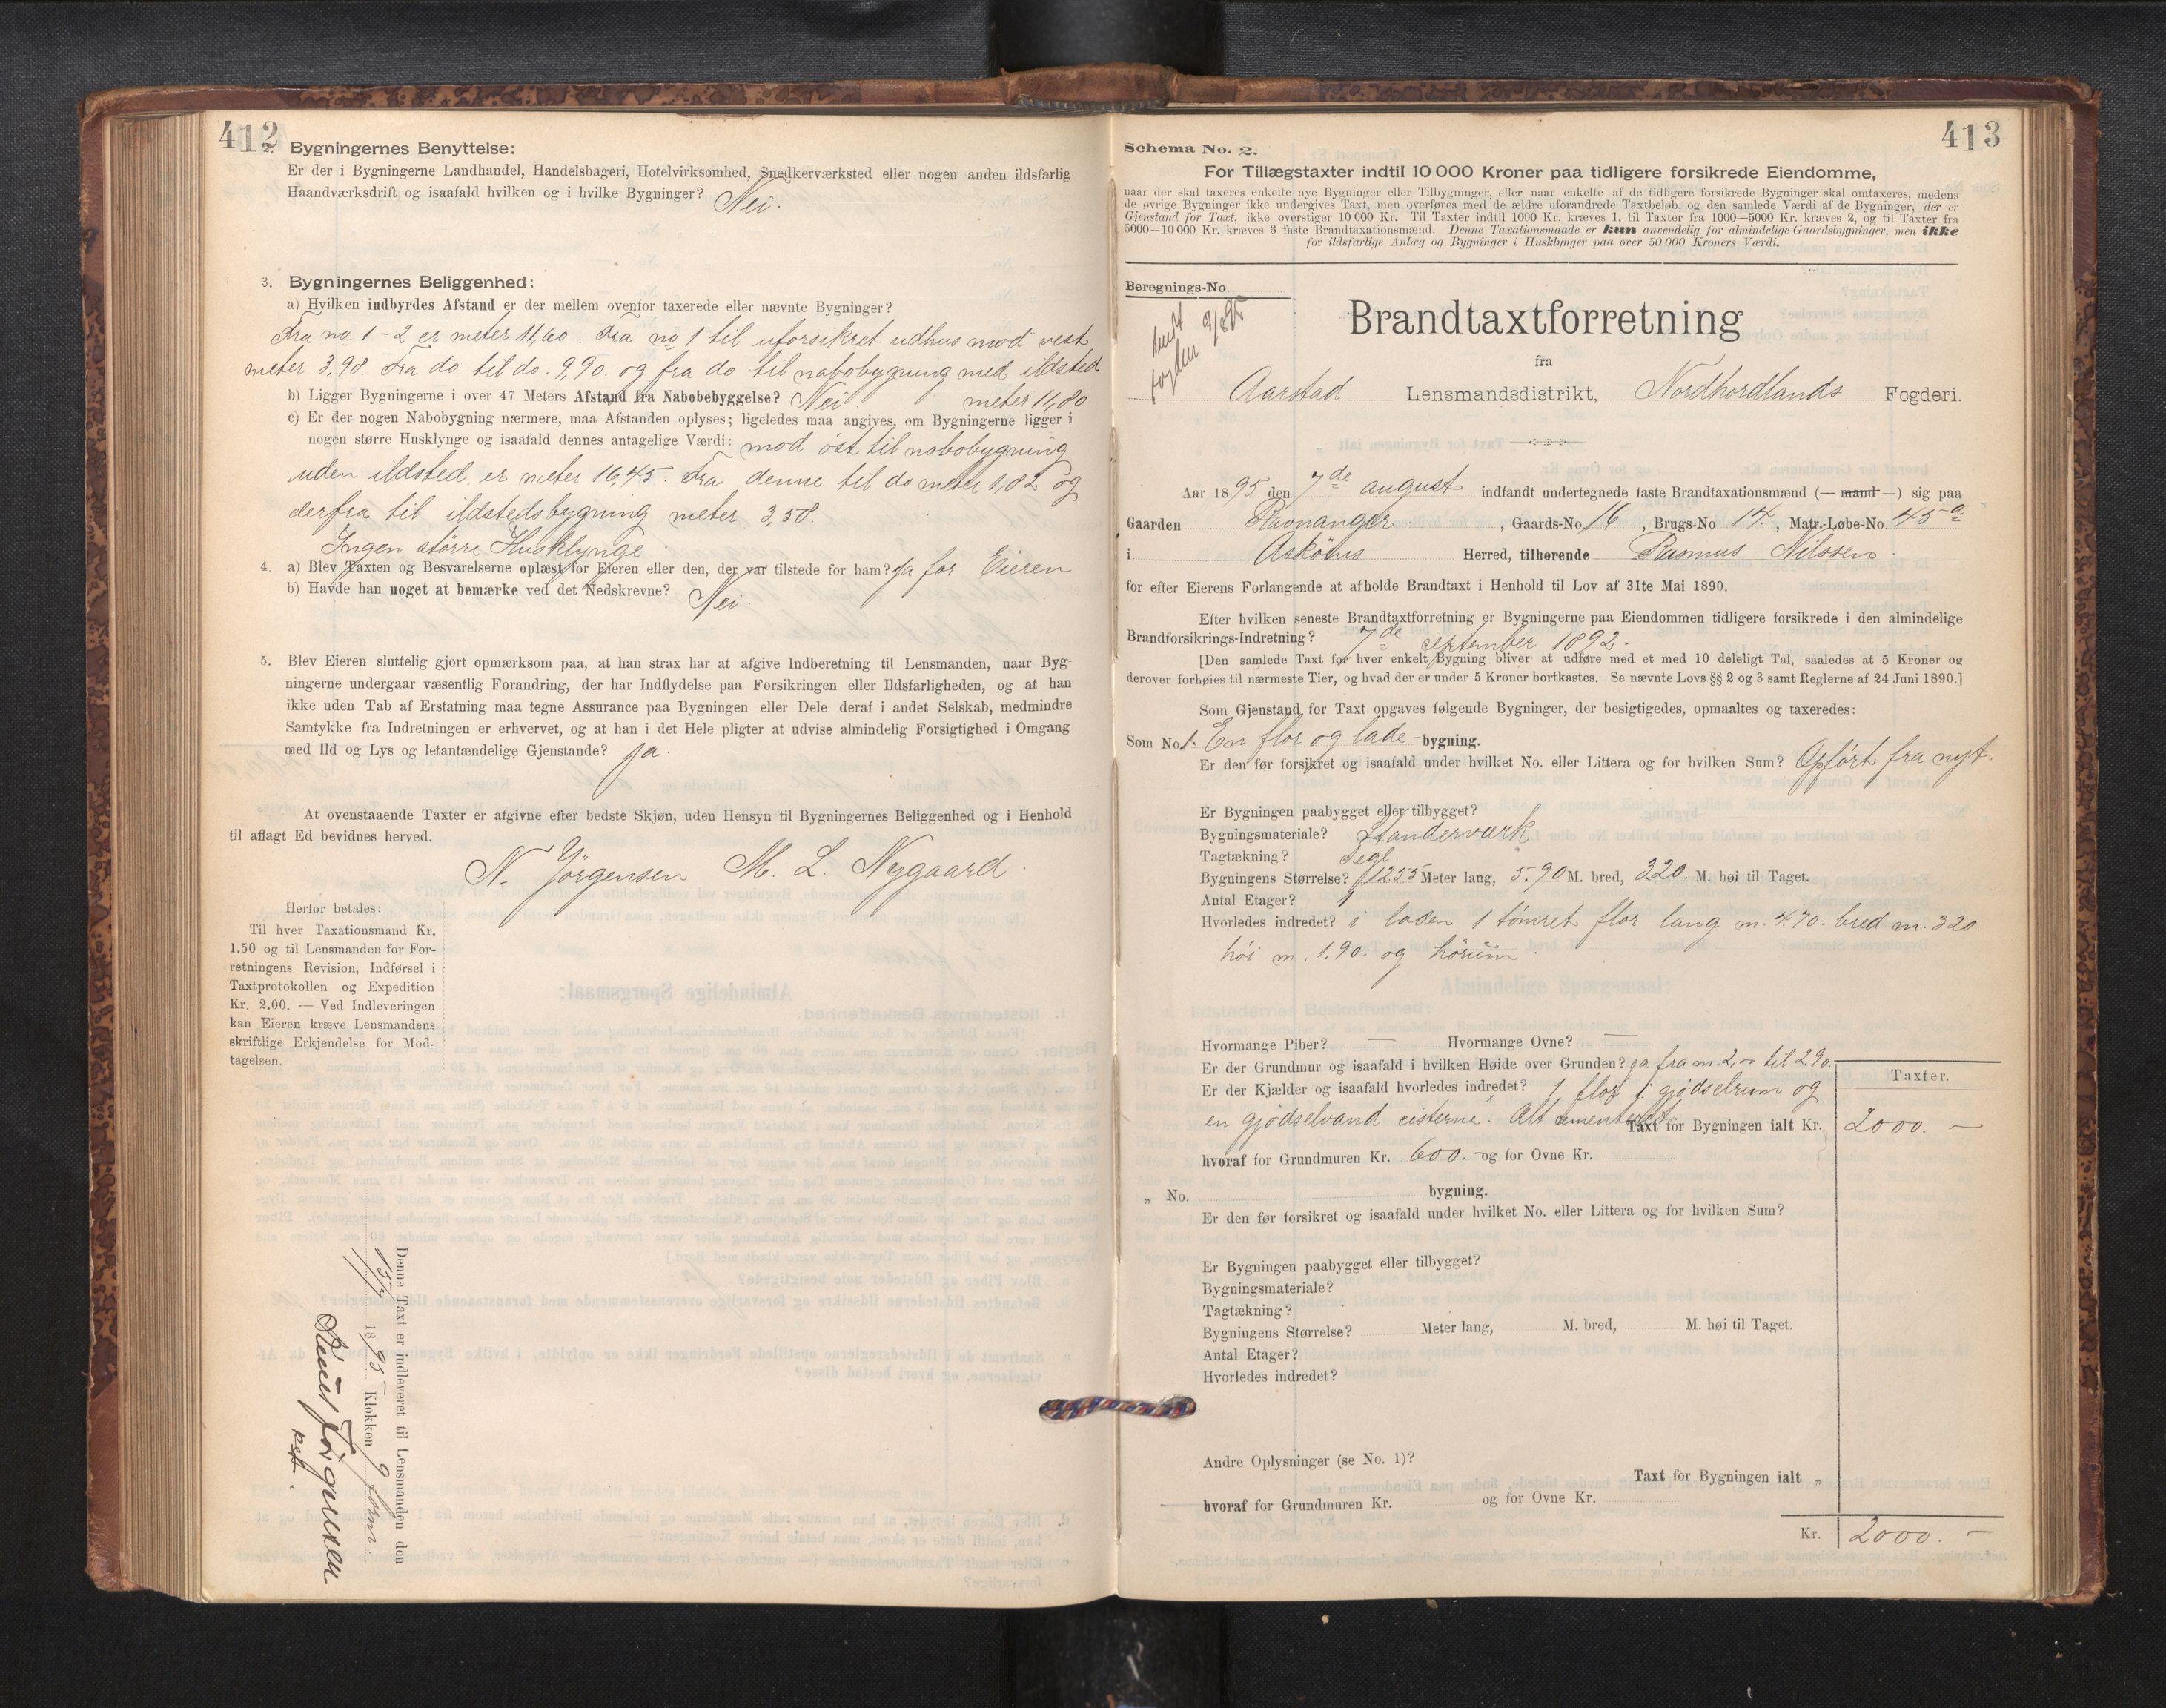 412
2. Bygningernes Benyttelse:
Er der i Bygningerne Landhandel, Handelsbageri, Hotelvirksomhed, Snedkerværksted eller nogen anden ildsfarlig
Haandværksdrift og isaafald hvilken og i hvilke Bygninger? Nei.
3. Bygningernes Beliggenhed:
a) Hvilken indbyrdes Afstand er der mellem ovenfor taxerede eller nævnte Bygninger?
Fra no 1-2 er meter 11,60. Fra no 1 til uforsikret udhus mod vest
meter 3,98. Fra do til do. 9,90. og fra do til nabobygning med ildsted
b) Ligger Bygningerne i over 47 Meters Afstand fra Nabobebyggelse? Nei. meter 11,80
c) Er der nogen Nabobygning nærmere, maa Afstanden oplyses; ligeledes maa angives, om Bygningerne ligger i
nogen større Husklynge og isaafald dennes antagelige Værdi: mod öst til nabobygning
uden ildsted er meter 16,45. Fra denne til do meter 1,82 og
derfra til ildstedsbygning meter 3,58.
Ingen större Husklynge.
4. a) Blev Taxten og Besvarelserne oplæst for Eieren eller den, der var tilstede for ham? Ja for Eieren
b) Havde han noget at bemærke ved det Nedskrevne? Nei.
5. Blev Eieren sluttelig gjort opmærksom paa, at han strax har at afgive Indberetning til Lensmanden, naar Byg-
ningerne undergaar væsentlig Forandring, der har Indflydelse paa Forsikringen eller Ildsfarligheden, og at han
ikke uden Tab af Erstatning maa tegne Assurance paa Bygningen eller Dele deraf i andet Selskab, medmindre
Samtykke fra Indretningen er erhvervet, og at han i det Hele pligter at udvise almindelig Forsigtighed i Omgang
med Ild og Lys og letantændelige Gjenstande? ja.
At ovenstaaende Taxter er afgivne efter bedste Skjøn, uden Hensyn til Bygningernes Beliggenhed og i Henhold
til aflagt Ed bevidnes herved.
N. Jörgensen M. L. Nygaard.
Herfor betales:
Til hver Taxationsmand Kr.
1.50 og til Lensmanden for For-
retningens Revision, Indførsel i
Taxtprotokollen og Expedition
Kr. 2.00. — Ved Indleveringen
kan Eieren kræve Lensmandens
skriftlige Erkjendelse for Mod-
tagelsen.
Denne Taxt er indleveret til Lensmanden den
15/7 1895 Klokken 9 form.
Jörgensen
413
Schema No. 2.
For Tillægstaxter indtil 10 000 Kroner paa tidligere forsikrede Eiendomme,
naar der skal taxeres enkelte nye Bygninger eller Tilbygninger, eller naar enkelte af de tidligere forsikrede Bygninger skal omtaxeres, medens
de øvrige Bygninger ikke undergives Taxt, men overføres med de ældre uforandrede Taxtbeløb, og den samlede Værdi af de Bygninger, der er
Gjenstand for Taxt, ikke overstiger 10 000 Kr. Til Taxter indtil 1000 Kr. kræves 1, til Taxter fra 1000—5000 Kr. kræves 2, og til Taxter fra
5000—10 000 Kr. kræves 3 faste Brandtaxationsmænd. Denne Taxationsmaade er kun anvendelig for almindelige Gaardsbygninger, men ikke
for ildsfarlige Anlæg og Bygninger i Husklynger paa over 50 000 Kroners Værdi.
Beregnings-No.
Sendt
fogden 9/8 95
Brandtaxtforretning
fra
Aarstad Lensmandsdistrikt, Nordhordlands Fogderi.
Aar 1895 den 7de august indfandt undertegnede faste Brandtaxationsmænd (— mand —) sig paa
Gaarden Ravnanger, Gaards-No. 16, Brugs-No 14., Matr.-Løbe-No. 45 a
i Asköens Herred, tilhørende Rasmus Nilssen.
for efter Eierens Forlangende at afholde Brandtaxt i Henhold til Lov af 31te Mai 1890.
Efter hvilken seneste Brandtaxtforretning er Bygningerne paa Eiendommen tidligere forsikrede i den almindelige
Brandforsikrings-Indretning? 7de september 1892.
[Den samlede Taxt for hver enkelt Bygning bliver at udføre med et med 10 deleligt Tal, saaledes at 5 Kroner og
derover forhøies til nærmeste Tier, og hvad der er under 5 Kroner bortkastes. Se nævnte Lovs §§ 2 og 3 samt Reglerne af 24 Juni 1890.]
Som Gjenstand for Taxt opgaves følgende Bygninger, der besigtigedes, opmaaltes og taxeredes:
Som No. 1. En flor og lade- bygning.
Er den før forsikret og isaafald under hvilket No. eller Littera og for hvilken Sum? Opfört fra nyt.
Er Bygningen paabygget eller tilbygget?
Bygningsmateriale? Standerværk
Tagtækning? Tegl
Bygningens Størrelse? 12.55 Meter lang, 5.90 M. bred, 320. M. høi til Taget.
Antal Etager? 1
Hvorledes indredet? i laden 1 tömret flor lang m. 4.70. bred m. 320.
höi m. 1.90. og hörum.
Hvormange Piber? — Hvormange Ovne? —
Er der Grundmur og isaafald i hvilken Høide over Grunden? ja fra m. 2,— til 2.90.
Er der Kjælder og isaafald hvorledes indredet? 1 flor 1 gjödselrum og
en gjödselvand cisterne. Alt cementeret. Taxt for Bygningen ialt Kr.
Taxter.
2000. —
hvoraf for Grundmuren Kr. 600. — og for Ovne Kr.
„ No. bygning.
Er den før forsikret og isaafald under hvilket No. eller Littera og for hvilken Sum?
Er Bygningen paabygget eller tilbygget?
Bygningsmateriale?
Tagtækning?
Bygningens Størrelse? Meter lang, M. bred, M. høi til Taget.
Antal Etager?
Hvorledes indredet?
Andre Oplysninger (se No. 1)?
Taxt for Bygningen ialt „
hvoraf for Grundmuren Kr. og for Ovne Kr.
Kr. 2000. —